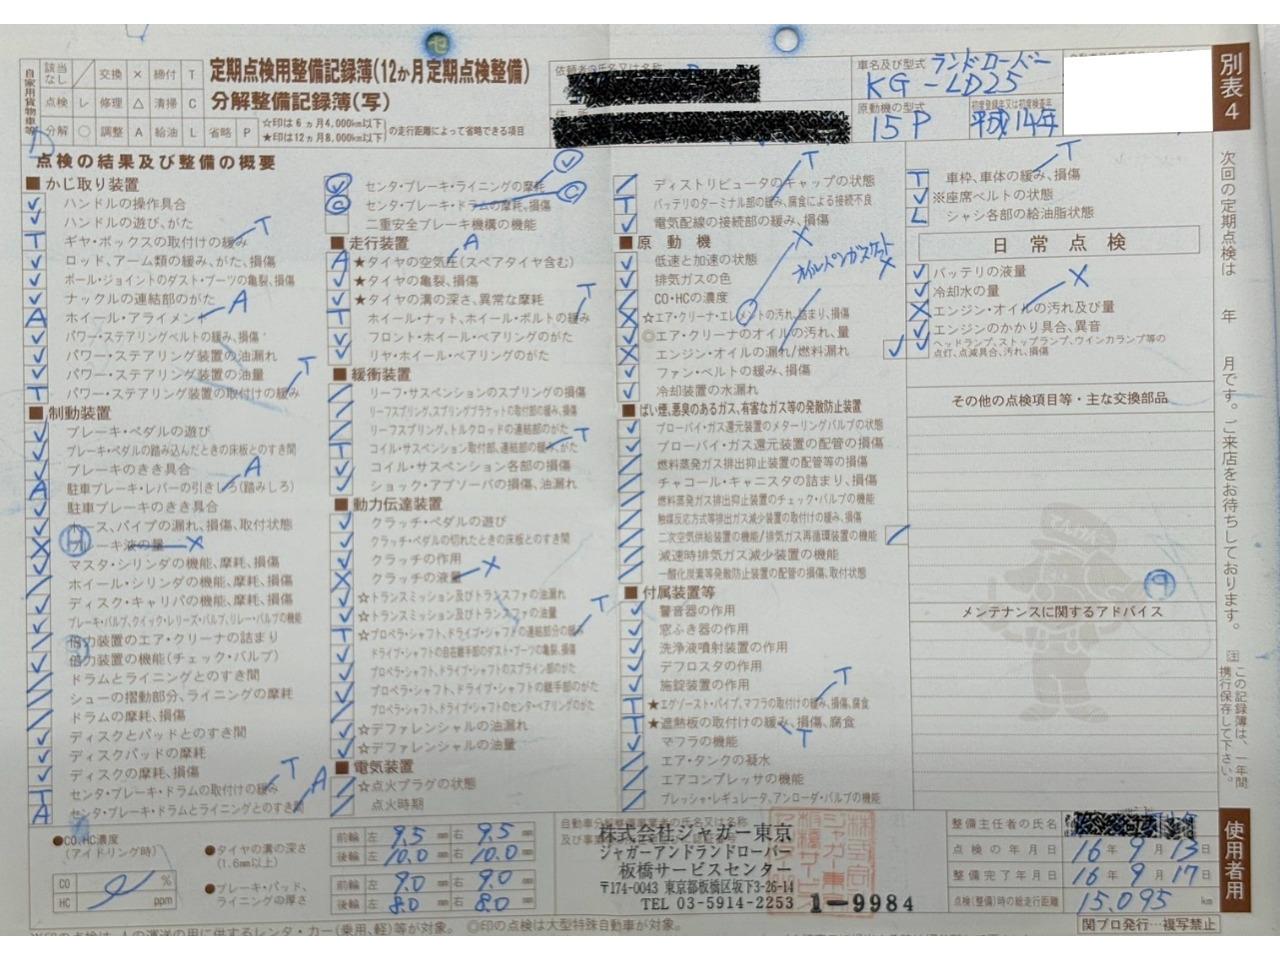 セ
自家用貨物車等
該当なし ／ 交換 × 締付 T
点検 レ 修理 △ 清掃 C
分解 ○ 調整 A 給油 L 省略 P
定期点検用整備記録簿(12か月定期点検整備)
分解整備記録簿(写)
☆印は6ヵ月4,000km以下
★印は12ヵ月8,000km以下
の走行距離によって省略できる項目
依頼者の氏名又は名称
車名及び型式
ランドローバー
KG-LD25
原動機の型式
15P
初度登録年又は初度検査年
平成14年
別表4
点検の結果及び整備の概要
■かじ取り装置
ハンドルの操作具合
ハンドルの遊び、がた
ギヤ・ボックスの取付けの緩み T
ロッド、アーム類の緩み、がた、損傷
ボール・ジョイントのダスト・ブーツの亀裂、損傷
ナックルの連結部のがた
ホイール・アライメント A
パワー・ステアリングベルトの緩み、損傷
パワー・ステアリング装置の油漏れ
パワー・ステアリング装置の油量
パワー・ステアリング装置の取付けの緩み T
■制動装置
ブレーキ・ペダルの遊び
ブレーキ・ペダルの踏み込んだときの床板とのすき間
ブレーキのきき具合
駐車ブレーキ・レバーの引きしろ(踏みしろ) A
駐車ブレーキのきき具合
ホース、パイプの漏れ、損傷、取付状態
ブレーキ液の量 ×
マスタ・シリンダの機能、摩耗、損傷
ホイール・シリンダの機能、摩耗、損傷
ディスク・キャリパの機能、摩耗、損傷
ブレーキ・バルブ、クイック・レリーズ・バルブ、リレー・バルブの機能
倍力装置のエア・クリーナの詰まり
倍力装置の機能(チェック・バルブ)
ドラムとライニングとのすき間
シューの摺動部分、ライニングの摩耗
ドラムの摩耗、損傷
ディスクとパッドとのすき間
ディスクパッドの摩耗
ディスクの摩耗、損傷
センタ・ブレーキ・ドラムの取付けの緩み T
センタ・ブレーキ・ドラムとライニングとのすき間 A
センタ・ブレーキ・ライニングの摩耗
センタ・ブレーキ・ドラムの摩耗、損傷
二重安全ブレーキ機構の機能
■走行装置 A
★タイヤの空気圧(スペアタイヤ含む)
★タイヤの亀裂、損傷
★タイヤの溝の深さ、異常な摩耗
ホイール・ナット、ホイール・ボルトの緩み T
フロント・ホイール・ベアリングのがた
リヤ・ホイール・ベアリングのがた
■緩衝装置
リーフ・サスペンションのスプリングの損傷
リーフスプリング、スプリングブラケットの取付部の緩み、損傷
リーフスプリング、トルクロッドの連結部のがた
コイル・サスペンション取付部、連結部の緩み、がた T
コイル・サスペンション各部の損傷
ショック・アブソーバの損傷、油漏れ
■動力伝達装置
クラッチ・ペダルの遊び
クラッチ・ペダルの切れたときの床板とのすき間
クラッチの作用
クラッチの液量 ×
☆トランスミッション及びトランスファの油漏れ
☆トランスミッション及びトランスファの油量
☆プロペラ・シャフト、ドライブ・シャフトの連結部分の緩み T
ドライブ・シャフトの自在継手部のダスト・ブーツの亀裂、損傷
プロペラ・シャフト、ドライブ・シャフトのスプライン部のがた
プロペラ・シャフト、ドライブ・シャフトの継手部のがた
プロペラ・シャフト、ドライブ・シャフトのセンタ・ベアリングのがた
☆デファレンシャルの油漏れ
☆デファレンシャルの油量
■電気装置
☆点火プラグの状態
点火時期
ディストリビュータのキャップの状態
バッテリのターミナル部の緩み、腐食による接続不良 T
電気配線の接続部の緩み、損傷
■原動機
低速と加速の状態
排気ガスの色
CO・HCの濃度
☆エア・クリーナ・エレメントの汚れ、詰まり、損傷 ×
◎エア・クリーナのオイルの汚れ、量
エンジン・オイルの漏れ/燃料漏れ
オイルパンガスケット ×
ファン・ベルトの緩み、損傷
冷却装置の水漏れ
■ばい煙、悪臭のあるガス、有害なガス等の発散防止装置
ブローバイ・ガス還元装置のメターリングバルブの状態
ブローバイ・ガス還元装置の配管の損傷
燃料蒸発ガス排出抑止装置の配管等の損傷
チャコール・キャニスタの詰まり、損傷
燃料蒸発ガス排出抑止装置のチェック・バルブの機能
触媒反応方式等排出ガス減少装置の取付けの緩み、損傷
二次空気供給装置の機能/排気ガス再循環装置の機能
減速時排気ガス減少装置の機能
一酸化炭素等発散防止装置の配管の損傷、取付状態
■付属装置等
警音器の作用
窓ふき器の作用
洗浄液噴射装置の作用
デフロスタの作用
施錠装置の作用
★エグゾースト・パイプ、マフラの取付けの緩み、損傷、腐食 T
★遮熱板の取付けの緩み、損傷、腐食 T
マフラの機能
エア・タンクの凝水
エアコンプレッサの機能
プレッシャ・レギュレータ、アンローダ・バルブの機能
車枠、車体の緩み、損傷 T
※座席ベルトの状態
シャシ各部の給油脂状態
日常点検
バッテリの液量
冷却水の量
エンジン・オイルの汚れ及び量 ×
エンジンのかかり具合、異音
ヘッドランプ、ストップランプ、ウインカランプ等の
点灯、点滅具合、汚れ、損傷
その他の点検項目等・主な交換部品
メンテナンスに関するアドバイス
次回の定期点検は 年 月です。ご来店をお待ちしております。
注 この記録簿は、一年間携行保存して下さい。
使用者用
●CO、HC濃度
(アイドリング時)
CO %
HC ppm
●タイヤの溝の深さ
(1.6mm以上)
前輪 左 9.5 mm 右 9.5 mm
後輪 左 10.0 mm 右 10.0 mm
●ブレーキ・パッド、
ライニングの厚さ
前輪 左 9.0 mm 右 9.0 mm
後輪 左 8.0 mm 右 8.0 mm
自動車分解整備事業者の氏名又は名称
株式会社ジャガー東京
ジャガーアンドランドローバー
板橋サービスセンター
〒174-0043 東京都板橋区坂下3-26-14
TEL 03-5914-2253
1-9984
整備主任者の氏名
点検の年月日 16年 9月 13日
整備完了年月日 16年 9月 17日
点検(整備)時の総走行距離 15,095 km
◎印の点検は大型特殊自動車が対象。
関プロ発行…複写禁止